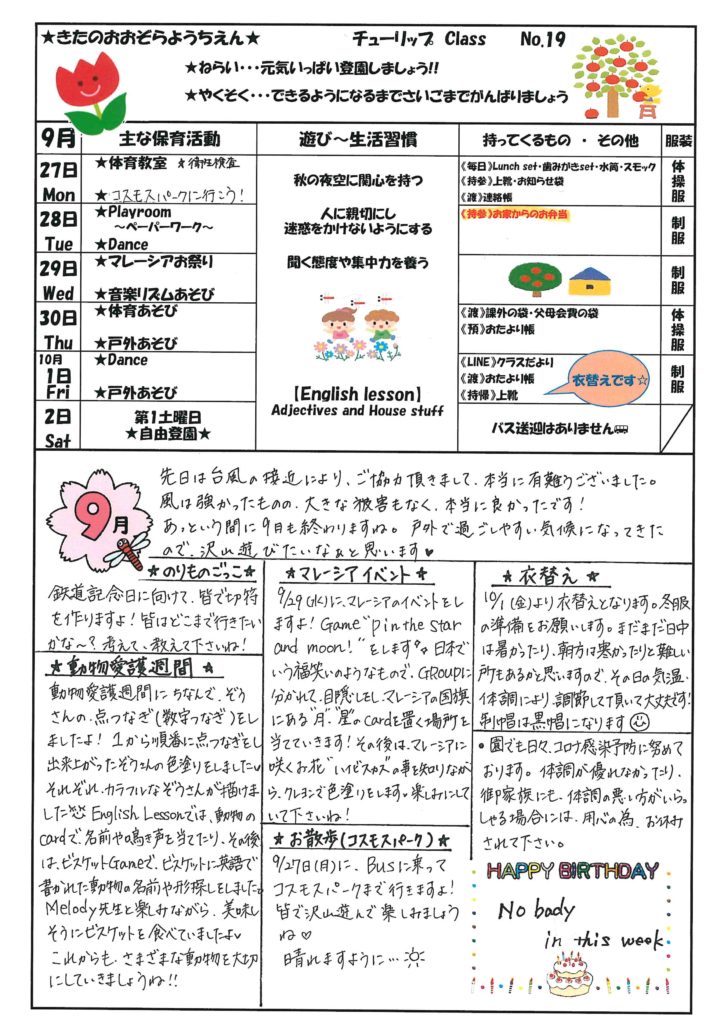 ★きたのおおぞらようちえん★ チューリップ Class No.19
★ねらい・・・元気いっぱい登園しましょう!!
★やくそく・・・できるようになるまでさいごまでがんばりましょう
9月 主な保育活動 遊び～生活習慣 持ってくるもの ・ その他 服装
27日 Mon
★体育教室 ★衛生検査
★コスモスパークに行こう!
28日 Tue
★Playroom
～ペーパーワーク～
★Dance
29日 Wed
★マレーシアお祭り
★音楽リズムあそび
30日 Thu
★体育あそび
★戸外あそび
10月
1日 Fri
★Dance
★戸外あそび
2日 Sat
第1土曜日
★自由登園★
秋の夜空に関心を持つ
人に親切にし
迷惑をかけないようにする
聞く態度や集中力を養う
【English lesson】
Adjectives and House stuff
《毎日》Lunch set・歯みがきset・水筒・スモック
《持参》上靴・お知らせ袋
《渡》連絡帳
体操服
《持参》お家からのお弁当
制服
制服
《渡》課外の袋・父母会費の袋
《預》おたより帳
体操服
《LINE》クラスだより
《渡》おたより帳
《持帰》上靴
衣替えです☆
制服
バス送迎はありません
9月
先日は台風の接近により、ご協力頂きまして、本当に有難うございました。
風は強かったものの、大きな被害もなく、本当に良かったです!
あっという間に9月も終わりますね。戸外で過ごしやすい気候になってきた
ので、沢山遊びたいなぁと思います♥
★のりものごっこ★
鉄道記念日に向けて、皆で切符
を作りますよ!皆はどこまで行きたい
かな～?考えて、教えて下さいね!
★動物愛護週間★
動物愛護週間にちなんで、ぞう
さんの点つなぎ(数字つなぎ)をし
ましたよ!1から順番に点つなぎをし
出来上がったぞうさんの色塗りをしました♥
それぞれ、カラフルなぞうさんが描けま
した English Lessonでは、動物の
cardで、名前や鳴き声を当てたり、その後
は、ビスケットGameで、ビスケットに英語で
書かれた動物の名前や形探しをしました。
Melody先生と楽しみながら、美味し
そうにビスケットを食べていましたよ♥
これからも、さまざまな動物を大切
にしていきましょうね!!
★マレーシアイベント★
9/29(水)に、マレーシアのイベントをし
ますよ!Game"pin the star
and moon!"をします 日本で
いう福笑いのようなもので、GROUPに
分かれて、目隠しをし、マレーシアの国旗
にある"月""星"のcardを置く場所を
当てていきます!その後は、マレーシアに
咲くお花"ハイビスカス"の事を知りなが
ら、クレヨンで色塗りをします♥楽しみにして
いて下さいね!
★お散歩(コスモスパーク)★
9/27日(月)に、Busに乗って
コスモスパークまで行きますよ!
皆で沢山遊んで楽しみましょう
ね♡
晴れますように…
★衣替え★
10/1(金)より衣替えとなります。冬服
の準備をお願いします。まだまだ日中
は暑かったり、朝方は寒かったりと難しい
所もあるかと思いますので、その日の気温・
体調により、調節して頂いて大丈夫です!
制帽は黒帽になります
・園でも日々、コロナ感染予防に努めて
おります。体調が優れなかったり、
御家族にも、体調の悪い方がいらっ
しゃる場合には、用心の為、お休み
されて下さい。
HAPPY BIRTHDAY
No body
in this week